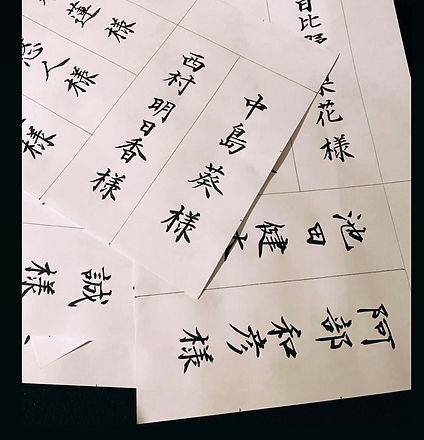 蓮様
人様
様
西村明日香様
中島葵様
日比
花様
池田健
阿部和彦様
誠様